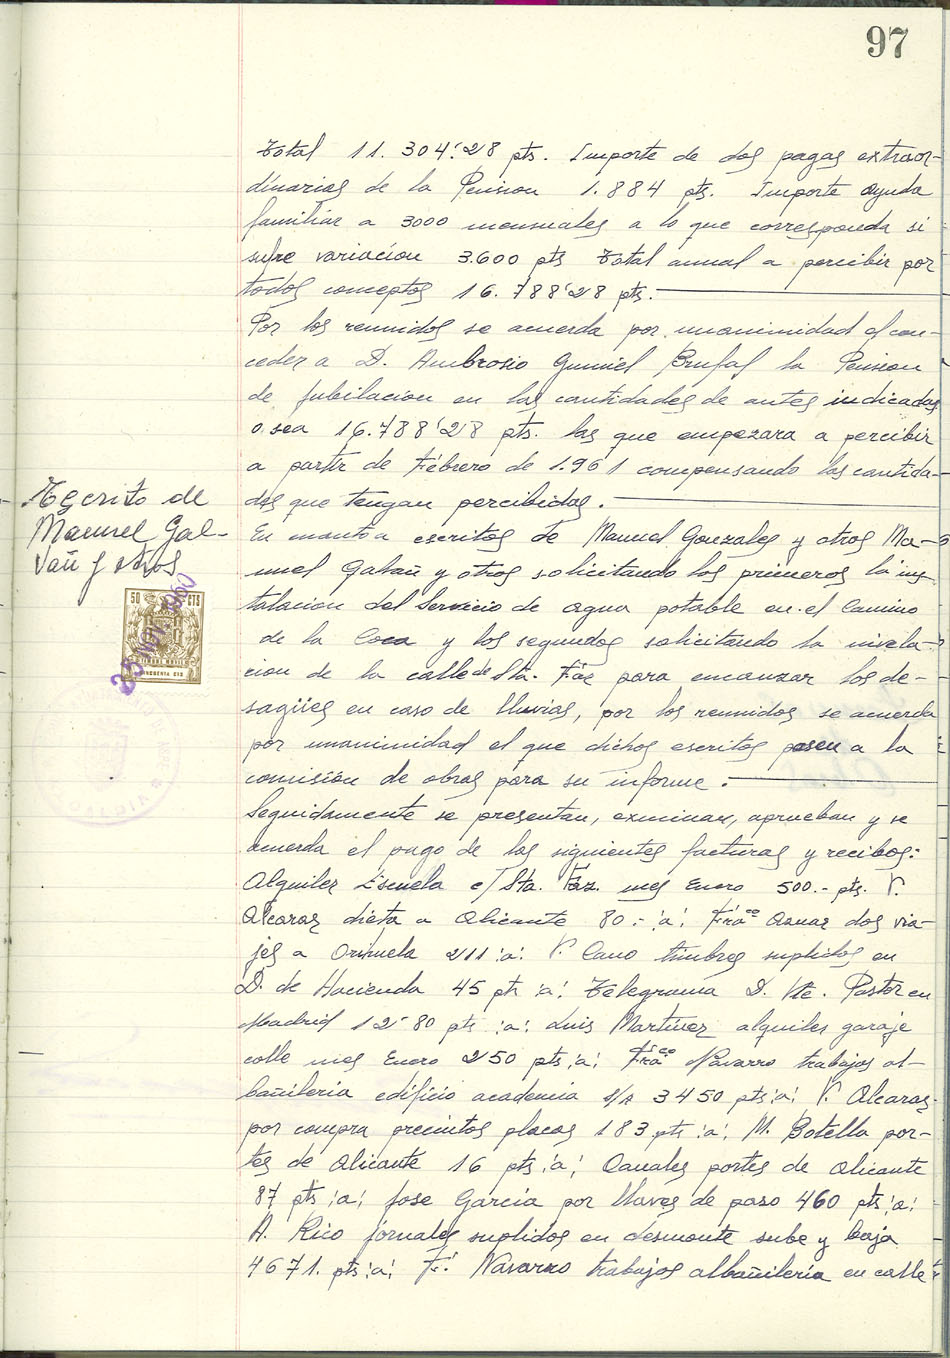 97
Total 11.304'28 pts. Importe de dos pagas extraor-
dinarias de la Pension 1.884 pts. Importe ayuda
familiar a 3000 mensuales a lo que corresponda si
sufre variación 3.600 pts Total anual a percibir por
todos conceptos 16.788'28 pts.
Por los reunidos se acuerda por unanimidad el con-
ceder a D. Ambrosio Gumiel Brufal la Pension
de jubilacion en las cantidades de antes indicadas
o sea 16.788'28 pts. las que empezara a percibir
a partir de Febrero de 1.961 compensando las cantida-
des que tengan percibidas.
Escrito de
Manuel Gal-
vañ y otros
50 CTS
25 NOV. 1960
En cuanto a escritos de Manuel Gonzales y otros Ma-
nuel Galvañ y otros solicitando los primeros la ins-
talacion del Servicio de agua potable en el Camino
de la Coca y los segundos solicitando la nivela-
cion de la calle de Sta. Faz para encauzar los de-
sagües en caso de lluvias, por los reunidos se acuerda
por unanimidad el que dichos escritos pasen a la
comisión de obras para su informe.
Seguidamente se presentan, examinan, aprueban y se
acuerda el pago de los siguientes facturas y recibos:
Alquiler Escuela c/ Sta. Faz. mes Enero 500.- pts. V.
Alcaraz dieta a Alicante 80.- :a: Frãco Aznar dos via-
jes a Orihuela 211 :a: V. Cano timbres suplidos en
D. de Hacienda 45 pts :a: Telegrama D. Vte. Pastor en
Madrid 12'80 pts :a: Luis Martínez alquiler garaje
calle mes Enero 250 pts :a: Frãco Navarro trabajos al-
bañileria edificio academia s/r 3450 pts :a: V. Alcaraz
por compra precintos placas 183 pts :a: M. Botella por-
tes de Alicante 16 pts :a: Canales portes de Alicante
87 pts :a: Jose García por llaves de paso 460 pts :a:
A. Rico jornales suplidos en desmonte sube y baja
4671. pts :a: F. Navarro trabajos albañileria en calle